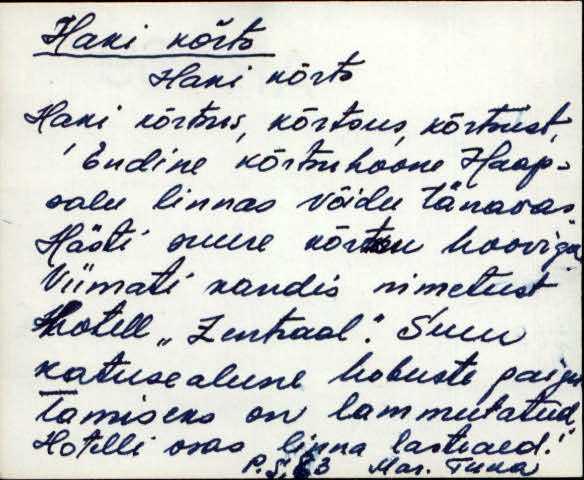 Hani kõrts
Hani kõrts
Hani kõrtsis, kõrtsus, kõrtsist,
"Endine kõrtsihoone Haap-
salu linnas Võidu tänavas.
Hästi suure kõrtsu hooviga
Viimati kandis nimetust
Hotell „Zentraal". Suur
katusealune hobuste paigu
tamiseks on lammutatud.
Hotelli osas linna lasteaed."
P.S. 83 Mar. Tuka